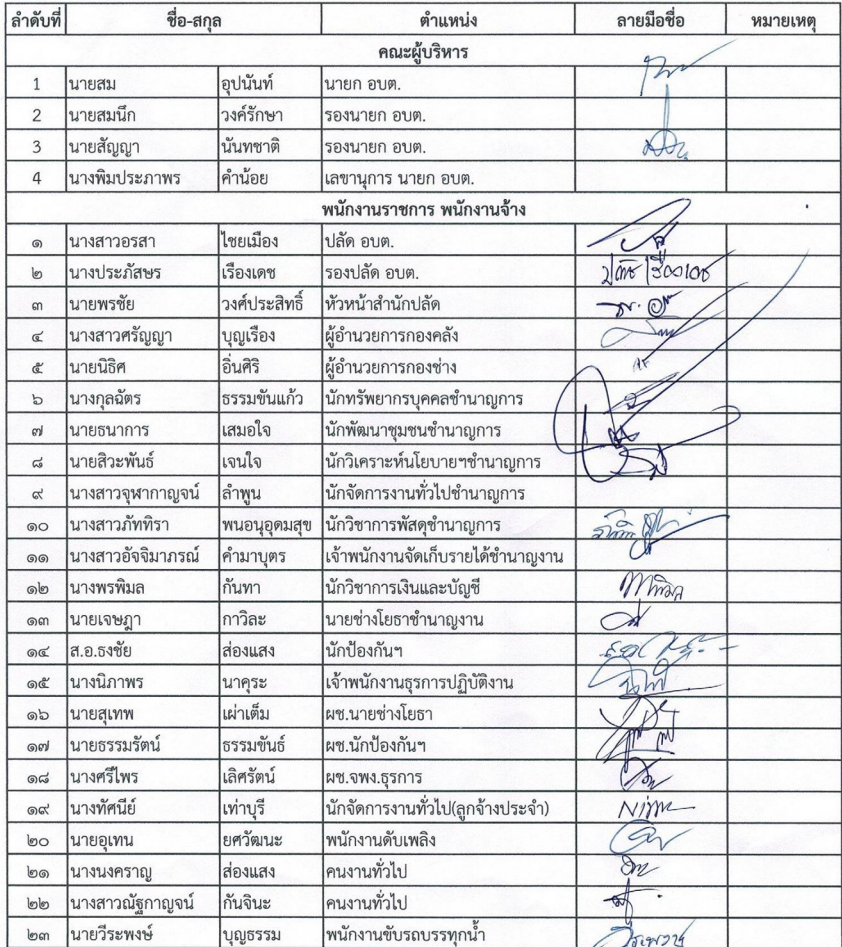 ลำดับที่ ชื่อ-สกุล ตำแหน่ง ลายมือชื่อ หมายเหตุ
คณะผู้บริหาร
1 นายสม อุปนันท์ นายก อบต.
2 นายสมนึก วงค์รักษา รองนายก อบต.
3 นายสัญญา นันทชาติ รองนายก อบต.
4 นางพิมประภาพร คำน้อย เลขานุการ นายก อบต.
พนักงานราชการ พนักงานจ้าง
๑ นางสาวอรสา ไชยเมือง ปลัด อบต.
๒ นางประภัสษร เรืองเดช รองปลัด อบต.
๓ นายพรชัย วงศ์ประสิทธิ์ หัวหน้าสำนักปลัด
๔ นางสาวศรัญญา บุญเรือง ผู้อำนวยการกองคลัง
๕ นายนิธิศ อิ่นศิริ ผู้อำนวยการกองช่าง
๖ นางกุลฉัตร ธรรมขันแก้ว นักทรัพยากรบุคคลชำนาญการ
๗ นายธนาการ เสมอใจ นักพัฒนาชุมชนชำนาญการ
๘ นายสิวะพันธ์ เจนใจ นักวิเคราะห์นโยบายฯชำนาญการ
๙ นางสาวจุฬากาญจน์ ลำพูน นักจัดการงานทั่วไปชำนาญการ
๑๐ นางสาวภัททิรา พนอนุอุดมสุข นักวิชาการพัสดุชำนาญการ
๑๑ นางสาวอัจจิมาภรณ์ คำมาบุตร เจ้าพนักงานจัดเก็บรายได้ชำนาญงาน
๑๒ นางพรพิมล กันทา นักวิชาการเงินและบัญชี
๑๓ นายเจษฎา กาวิละ นายช่างโยธาชำนาญงาน
๑๔ ส.อ.ธงชัย ส่องแสง นักป้องกันฯ
๑๕ นางนิภาพร นาคุระ เจ้าพนักงานธุรการปฏิบัติงาน
๑๖ นายสุเทพ เผ่าเต็ม ผช.นายช่างโยธา
๑๗ นายธรรมรัตน์ ธรรมขันธ์ ผช.นักป้องกันฯ
๑๘ นางศรีไพร เลิศรัตน์ ผช.จพง.ธุรการ
๑๙ นางทัศนีย์ เท่าบุรี นักจัดการงานทั่วไป(ลูกจ้างประจำ)
๒๐ นายอุเทน ยศวัฒนะ พนักงานดับเพลิง
๒๑ นางนงคราญ ส่องแสง คนงานทั่วไป
๒๒ นางสาวณัฐกาญจน์ กันจินะ คนงานทั่วไป
๒๓ นายวีระพงษ์ บุญธรรม พนักงานขับรถบรรทุกน้ำ